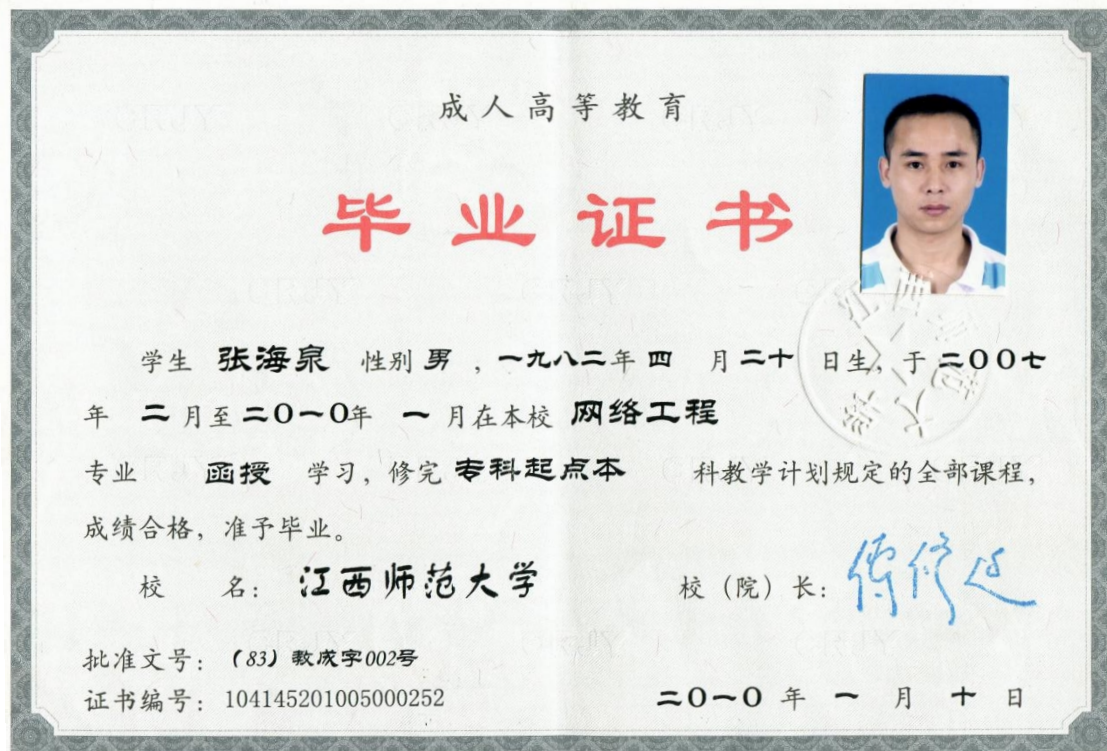 成人高等教育
毕业证书
学生 张海泉 性别 男 ，一九八二年 四 月 二十 日生，于 二〇〇七
年 二 月至 二〇一〇年 一 月在本校 网络工程
专业 函授 学习，修完 专科起点本 科教学计划规定的全部课程，
成绩合格，准予毕业。
校 名： 江西师范大学 校（院）长： 傅修延
批准文号：（83）教成字002号
证书编号：104145201005000252 二〇一〇 年 一 月 十 日